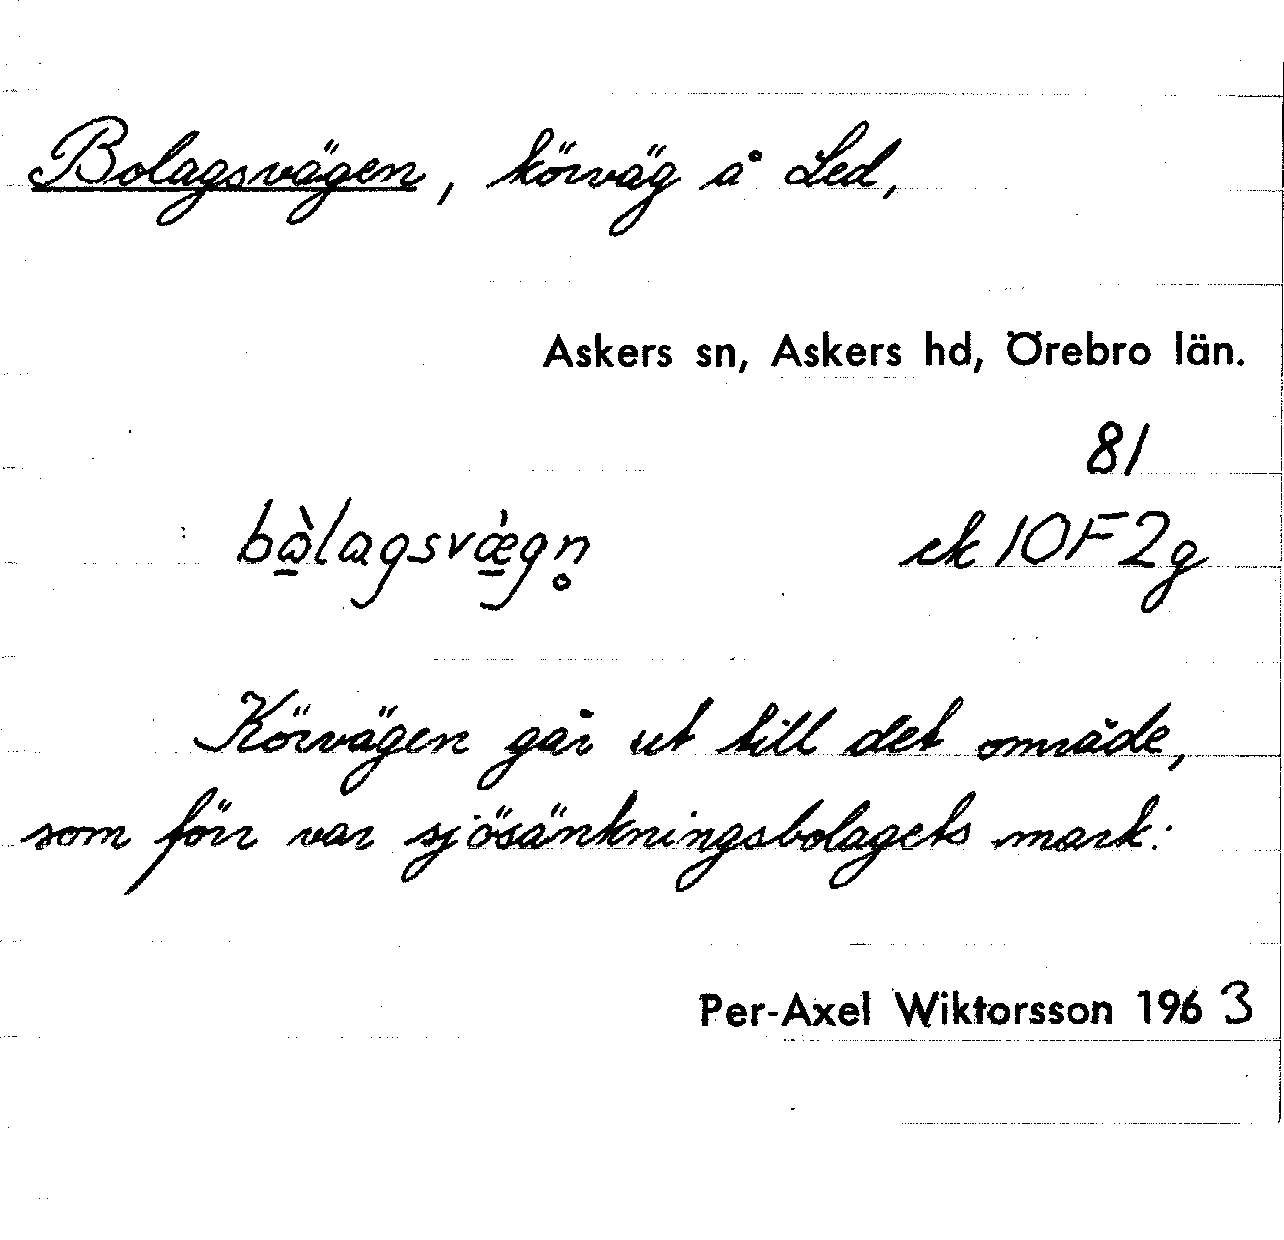 Bolagsvägen, körväg å Led,
Askers sn, Askers hd, Örebro län.
81
bò̲lagsvæ̲̀gn̥ ek 10F2g
Körvägen går ut till det område,
som förr var sjösänkningsbolagets mark.
Per-Axel Wiktorsson 1963